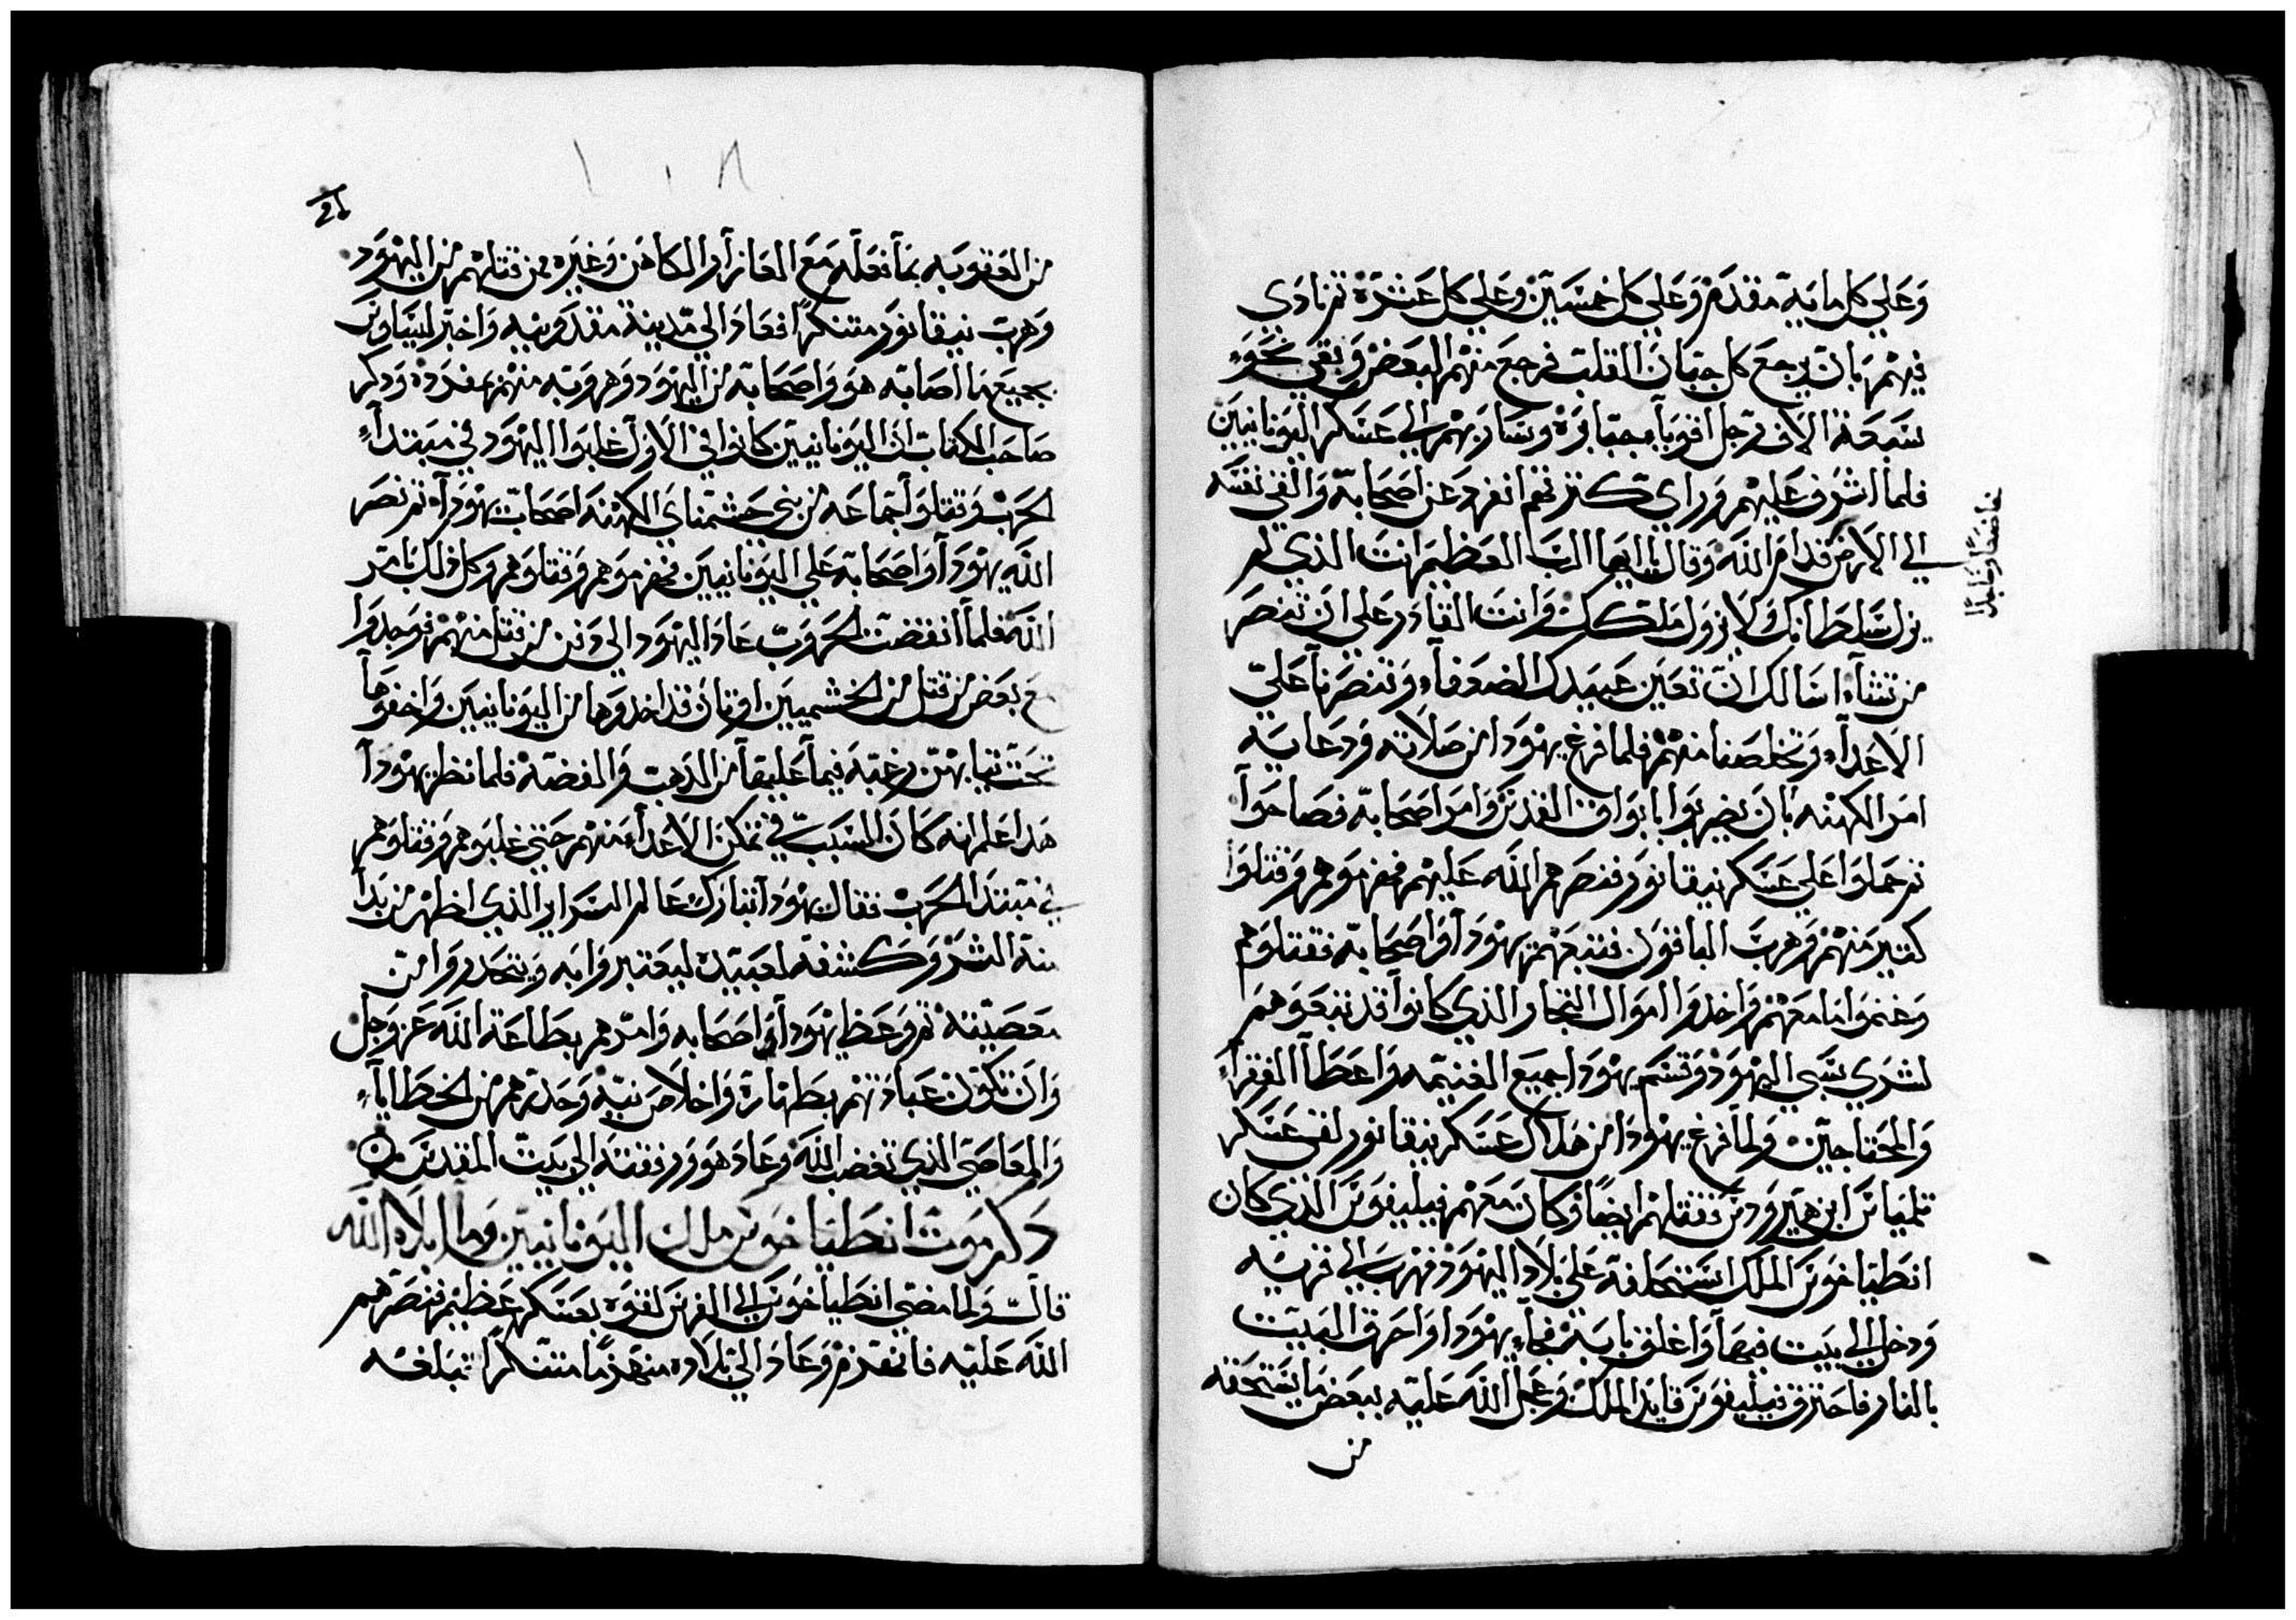 وعلي كل مايه مقدم وعلي كل خمسين وعلي كل عشره ثم نادي
فيهم بان يرجع كل جبان القلب فرجع منهم البعض وبقي نحو
سبعة الاف رجل اقويآء جبابره وسار بهم الي عسكر اليونانيين
فلما اشرف عليهم وراي كثرتهم انفرد عن اصحابه والقي نفسه
الي الارض قدام الله وقال ايها الرب العظيم انت الذي لم
خاضعا وخايبا
يزل سلطانك لا يزول ملكك وانت القادر علي ان تنصر
من تشآء اسالك ان تعين عبيدك الضعفآء وتنصرنا علي
الاعدآء وتخلصنا منهم فلما فرغ يهودا من صلاته ودعايه
امر الكهنه بان يضربوا بابواق القدس وامر اصحابه فصاحوا
ثم حملوا علي عسكر نيقانور فنصرهم الله عليهم فهزموهم وقتلوا
كثير منهم وهرب الباقون فتبعهم يهودا واصحابه فقتلوهم
وغنموا ما معهم واخدوا اموال التجار الذي كانوا قد تبعوهم
لشري سبي اليهود وقسم يهودا جميع الغنيمه واعطا الفقرآء
والمحتاجين ولما فرغ يهودا من هلاك عسكر نيقانور لقي عسكر
تلمياس ابن هيرودس فقتلهم ايضا وكان معهم فيليفوس الذي كان
انطياخوس الملك استخلفه علي بلاد اليهود فهرب الي قريه
ودخل الي بيت فيها واغلق بابه فجآء يهودا واحرق البيت
بالنار فاحترق فيليفوس قايد الملك وعجل الله عليه ببعض ما يستحقه
من
١٠٨
من العقوبه بما فعله مع العازار الكاهن وغيره ممن قتلهم من اليهود
وهرب نيقانور متنكرا فعاد الي مدينة مقدونيه واخبر ليساوس
بجميع ما اصابه هو واصحابه من اليهود وهروبه منهم بمفرده ودكر
صاحب الكتاب ان اليونانيين كانوا في الاول غلبوا اليهود في مبتدآء
الحرب وقتلوا جماعه من بني حشمناي الكهنه اصحاب يهودا ثم نصر
الله يهودا واصحابه علي اليونانيين فهزموهم وقتلوهم وكل ذلك بامر
الله فلما انقضت الحروب عاد اليهود الي دفن من قتل منهم فوجدوا
مع بعض من قتل من الحشميين اوثان قد اخدوها من اليونانيين واخفوها
تحت ثيابهم رغبه فيما عليها من الدهب والفضه فلما نظر يهودا
هدا علم انه كان السبب في تمكن الاعدآء منهم حتي غلبوهم وقتلوهم
في مبتدا الحرب فقال يهودا تبارك عالم السراير الذي اظهر من بدا
منه الشر وكشفه لعبيده ليعتبروا به ويتحدروا من
معصيته ثم وعظ يهودا واصحابه وامرهم بطاعة الله عز وجل
وان تكون عبادتهم بطهارة واخلاص نيه وحدرهم من الخطايآء
والمعاصي الذي تغضب الله وعاد هو ورفقته الي بيت المقدس
دكر موت انطياخوس ملك اليونانيين وما ابلاه الله
قال ولما مضي انطياخوس الي الفرس لقوه بعسكر عظيم فنصرهم
الله عليه فانهزم وعاد الي بلاده منهزما متنكرا فبلغه